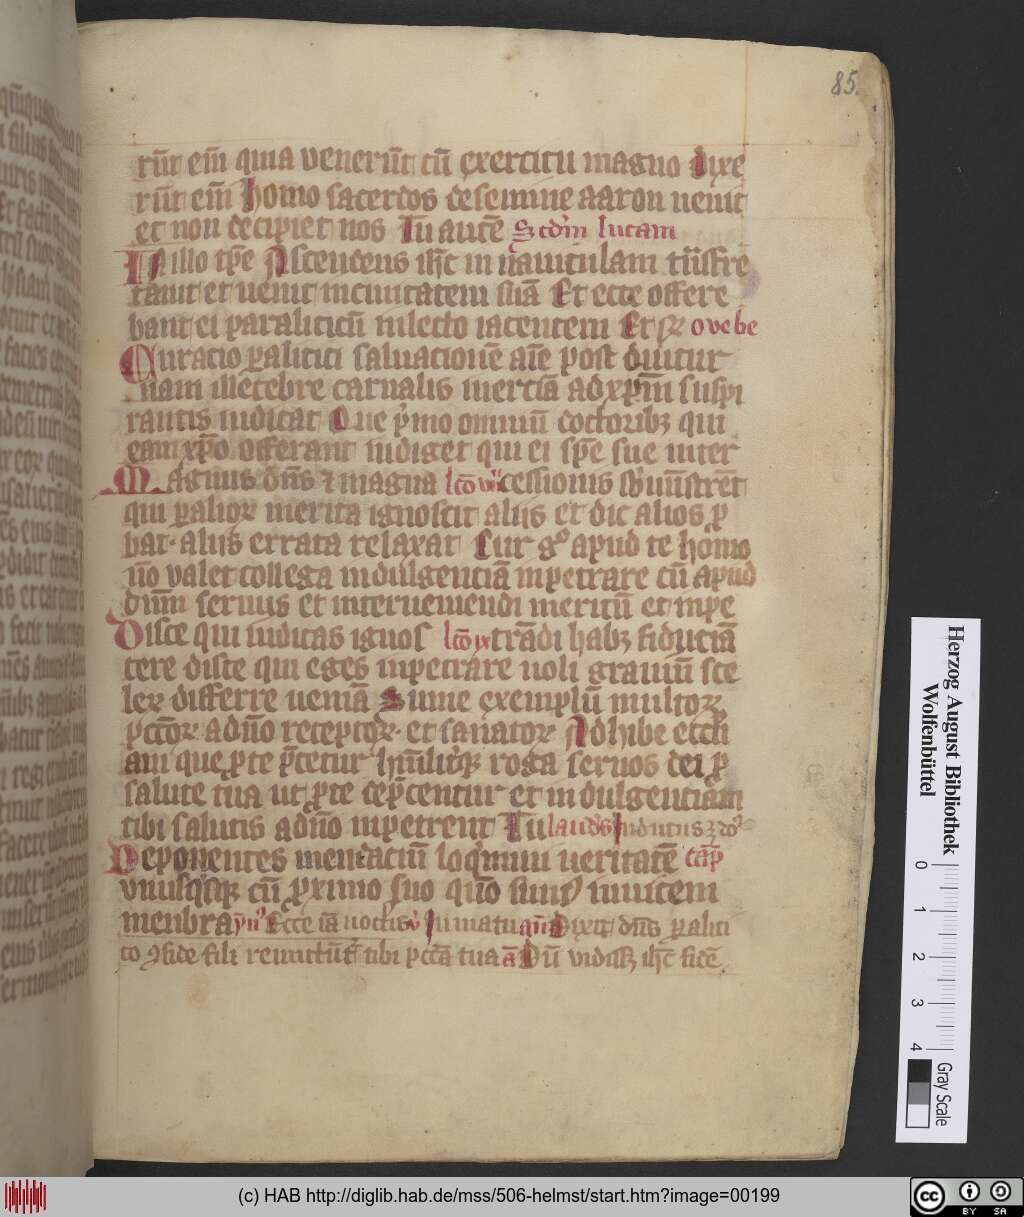 85.
rūt eīn quia venerūt cū exercitu magno dixe
rūt eīn homo sacerdos de semine aaron uenit
et non decipiet nos Tu autē Scd'm lucam
In illo tp̄e Ascendens ih̄c in nauiculam trāsfre
tauit et uenit in ciuitatem suā Et ecce offere
bant ei paraliticū in lecto iacentem Et
Curatio palitici saluationē aīe post
nam illecebre carnalis inerciā ad xp̄m suspi
rantis indicat Que p'mo omniū doctoribꝫ qui
eam xp̄o offerant indiget qui ei sp̄e sue inter
Magnus dn̄s ⁊ magna lc̄o cessionis
qui palioꝝ merita ignoscit alijs et dic alios p
bat. alijs errata relaxat Cur gͦ apud te homo
nō valet collega indulgenciā inpetrare cū apud
dūm seruus et interueniendi meritū et inpe
Disce qui iudicas ignos lc̄o ix trādi habꝫ fiduciā
cere disce qui eges inpetrare noli grauiū sce
leꝝ differre ueniā Sume exemplū multoꝝ
pctōꝝ ad n̄o receptoꝝ. et sanatoꝝ Adhibe eccli
am que p te p̄cetur roga seruos dei p
salute tua ut p te dep̄centur et indulgenciam
tibi salutis ad n̄o inpetrent Tu laudes Induitus
Deponentes mendaciū loq'mini ueritatē cap̄
vnusq'sqꝫ cū proximo suo qm̄ sum' inuicem
menbra yn' Ecce iā noctis v' In matu an̄a Dixit dn̄s paliti
co ꝯfide fili remittūt' tibi pctā tua a Cū vidisꝫ ih̄c fidē
Herzog August Bibliothek
Wolfenbüttel
0 1 2 3 4
Gray Scale
(c) HAB http://diglib.hab.de/mss/506-helmst/start.htm?image=00199
cc BY SA